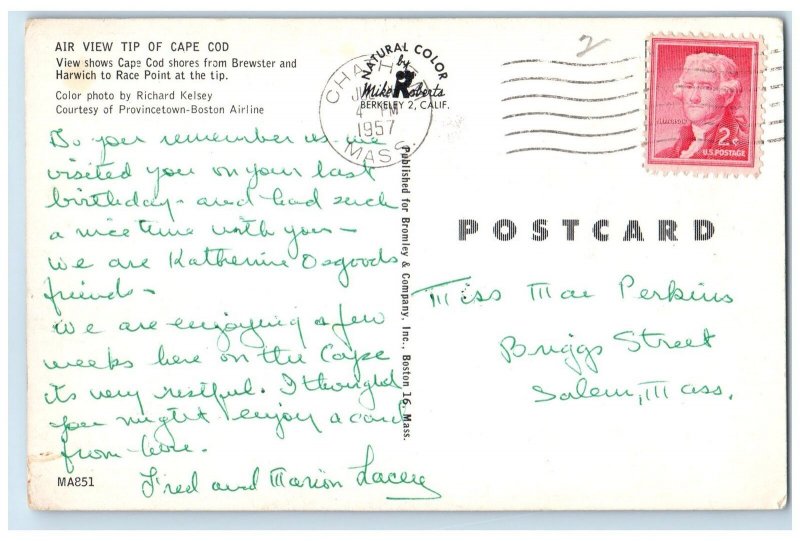 AIR VIEW TIP OF CAPE COD
View shows Cape Cod shores from Brewster and
Harwich to Race Point at the tip.
Color photo by Richard Kelsey
Courtesy of Provincetown-Boston Airline
Do you remember us we
visited you on your last
birthday - and had such
a nice time with you -
we are Katherine Osgoods
friends -
We are enjoying a few
weeks here on the Cape
its very restful. I thought
you might enjoy a card
from here.
Fred and Marion Lacey
MA851
CHATHAM
4 PM
1957
MASS.
NATURAL COLOR
by
Mike Roberts
BERKELEY 2, CALIF.
Published for Bromley & Company, Inc., Boston 16, Mass.
2
JEFFERSON
2¢
U.S. POSTAGE
POSTCARD
Miss Mae Perkins
Briggs Street
Salem, Mass.